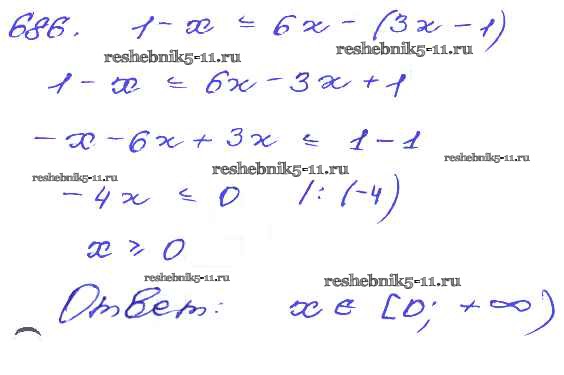 686. 1 - x ≤ 6x - (3x - 1)
reshebnik5-11.ru reshebnik5-11.ru
1 - x ≤ 6x - 3x + 1
- x - 6x + 3x ≤ 1 - 1
reshebnik5-11.ru
reshebnik5-11.ru reshebnik5-11.ru
- 4x ≤ 0 /: (-4)
x ≥ 0
reshebnik5-11.ru reshebnik5-11.ru
Ответ: x ∈ [0; +∞)